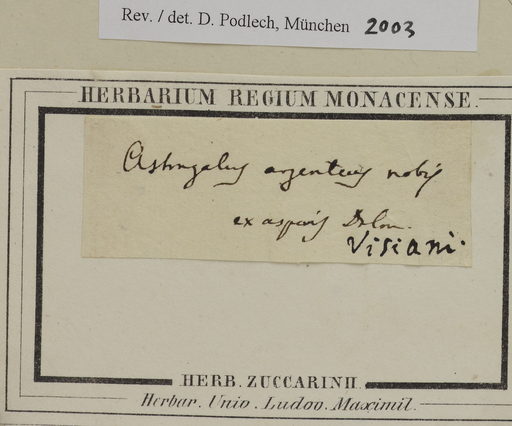 Rev. / det. D. Podlech, München 2003
HERBARIUM REGIUM MONACENSE.
Astragalus argenteus nobis
ex asperis Dalm.
Visiani.
HERB. ZUCCARINII.
Herbar. Univ. Ludov. Maximil.